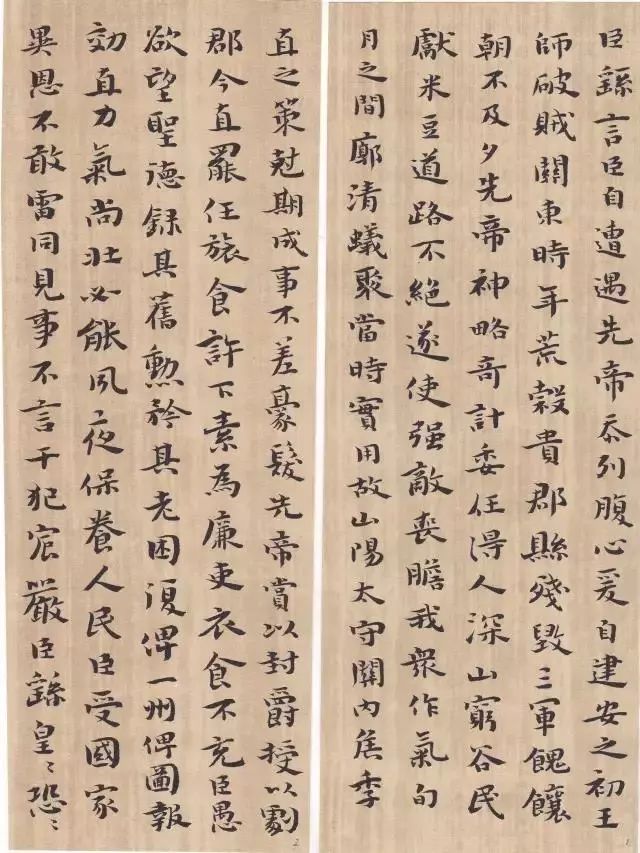 臣繇言臣自遭遇先帝忝列腹心爰自建安之初王
師破賊關東時年荒穀貴郡縣殘毀三軍餽饟
朝不及夕先帝神略奇計委任得人深山窮谷民
獻米豆道路不絕遂使强敵喪膽我衆作氣旬
月之間廓清蟻聚當時實用故山陽太守關內侯季
1
直之策尅期成事不差豪髮先帝賞以封爵授以劇
郡今直罷任旅食許下素為廉吏衣食不充臣愚
欲望聖德録其舊勳矜其老困復俾一州俾圖報
効直力氣尚壯必能夙夜保養人民臣受國家
異恩不敢雷同見事不言干犯宸嚴臣繇皇〻恐〻
2